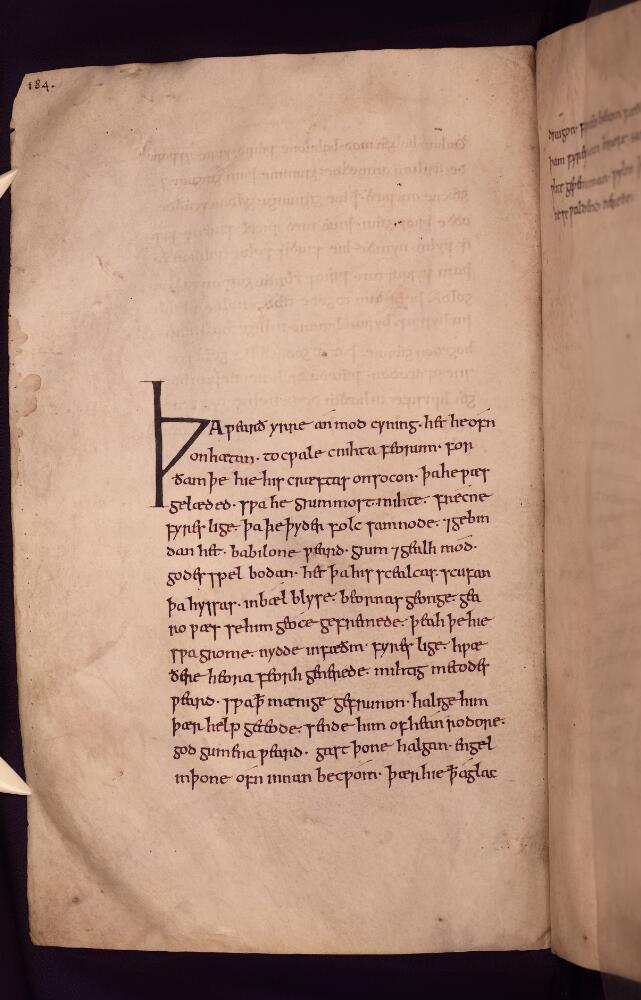 184.
ÞA ƿearð yrre an mod cyning. het he ofn
onhætan. to cƿale cnihta feorum. for
ðam þe hie his cræftas onsocon. þa he ƿæs
gelæded. sƿa he grimmost. mihte. frecne
fyres lige. þa he þyder folc samnode. ⁊gebin
dan het. babilone ƿeard. grim ⁊gealh mod.
godes spel bodan. het þa his scealcas. scufan
þa hyssas. in bæl blyse. beornas geonge. gea
ro ƿæs se him geoce gefremede. þeah þe hie
sƿa grome. nydde in fæðm. fyres lige. hƿæ
ðere heora feorh generede. mihtig metodes
ƿeard. sƿa ꝥ mænige gefrunon. halige him
þær help geteode. sende him of hean rodore.
god gumena ƿeard. gast þone halgan. engel
in þone ofn innan becƿom. þær hie ꝥ aglac